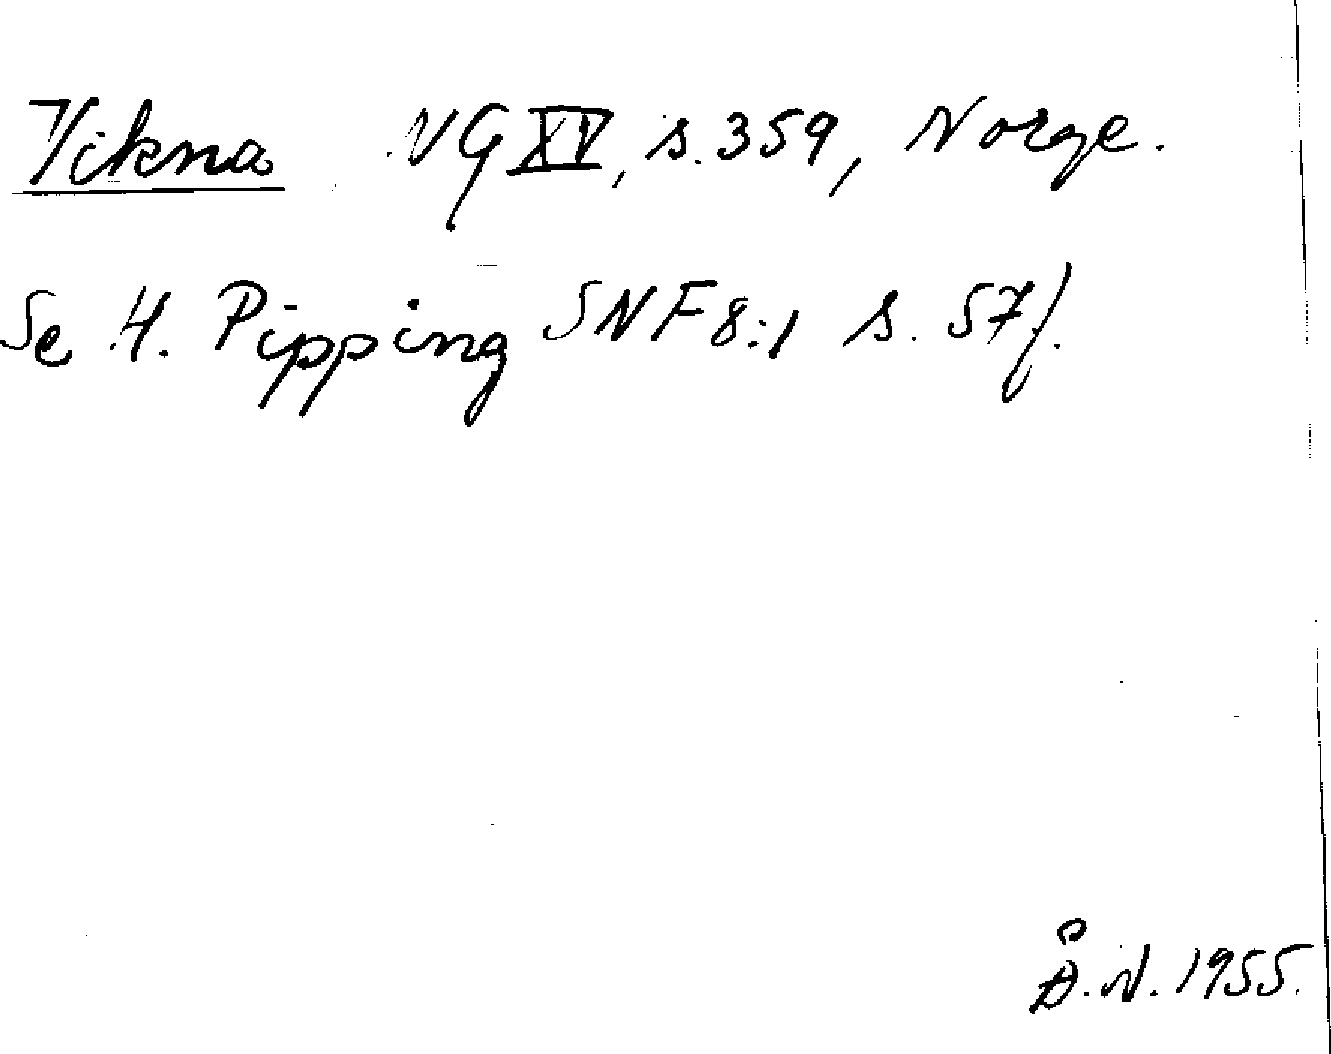 Vikna NG XV, s. 359, Norge.
Se H. Pipping SNF 8:1 s. 57f.
Å.N. 1955.